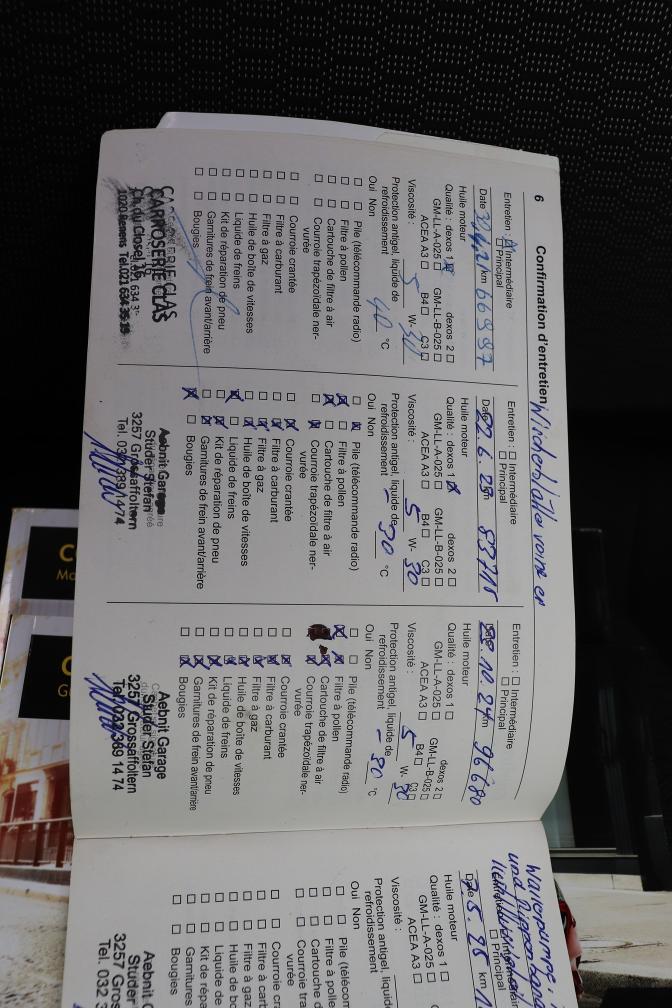 6 Confirmation d'entretien
Entretien : Intermédiaire
Principal
Date km 66997
Huile moteur
Qualité : dexos 1 dexos 2
GM-LL-A-025 GM-LL-B-025
ACEA A3 B4 C3
Viscosité : 5 W- 30
Protection antigel, liquide de
refroidissement 40 °C
Oui Non
Pile (télécommande radio)
Filtre à pollen
Cartouche de filtre à air
Courroie trapézoïdale ner-
vurée
Courroie crantée
Filtre à carburant
Filtre à gaz
Huile de boîte de vitesses
Liquide de freins
Kit de réparation de pneu
Garnitures de frein avant/arrière
Bougies
CARROSSERIE CLAS
1020 Renens Tel.021 634 35 15
Entretien : Intermédiaire
Principal
Date 22.6.23 km 83715
Huile moteur
Qualité : dexos 1 dexos 2
GM-LL-A-025 GM-LL-B-025
ACEA A3 B4 C3
Viscosité : 5 W- 30
Protection antigel, liquide de
refroidissement - 30 °C
Oui Non
Pile (télécommande radio)
Filtre à pollen
Cartouche de filtre à air
Courroie trapézoïdale ner-
vurée
Courroie crantée
Filtre à carburant
Filtre à gaz
Huile de boîte de vitesses
Liquide de freins
Kit de réparation de pneu
Garnitures de frein avant/arrière
Bougies
Aebnit Garage
Studer Stefan
3257 Grossaffoltern
Tel. 032 389 14 74
Entretien : Intermédiaire
Principal
28.10.24 km 96680
Huile moteur
Qualité : dexos 1 dexos 2
GM-LL-A-025 GM-LL-B-025
ACEA A3 B4 C3
Viscosité : 5 W- 30
Protection antigel, liquide de
refroidissement - 30 °C
Oui Non
Pile (télécommande radio)
Filtre à pollen
Cartouche de filtre à air
Courroie trapézoïdale ner-
vurée
Courroie crantée
Filtre à carburant
Filtre à gaz
Huile de boîte de vitesses
Liquide de freins
Kit de réparation de pneu
Garnitures de frein avant/arrière
Bougies
Aebnit Garage
Studer Stefan
3257 Grossaffoltern
Tel. 032 389 14 74
und
Principal
Date 7.5.25 km
Huile moteur
Qualité : dexos 1
GM-LL-A-025
ACEA A3
Viscosité :
Protection antigel, liquide
refroidissement
Oui Non
Pile (télécom
Filtre à pollen
Cartouche de
Courroie tra
vurée
Courroie cr
Filtre à car
Filtre à gaz
Huile de bo
Liquide de
Kit de répa
Garnitures
Bougies
Aebnit G
Studer
3257 Gros
Tel. 032 3